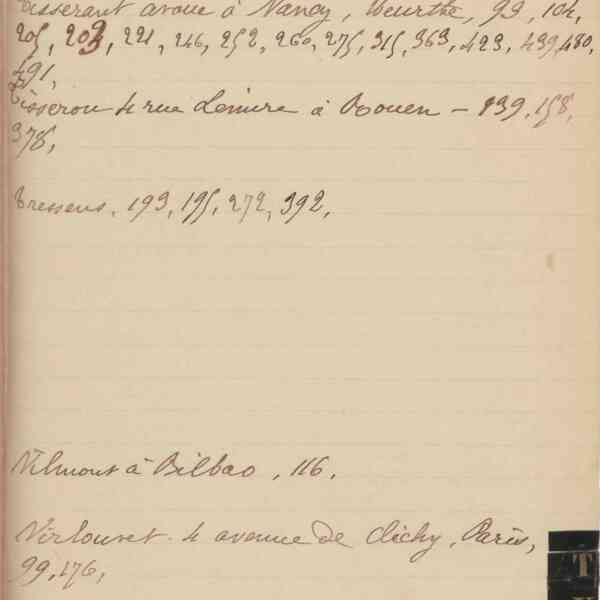 Tisserant avoué à Nancy, Meurthe, 99, 104,
205, 209, 221, 246, 252, 260, 275, 315, 363, 423, 439, 480,
491,
Tisseron 4 rue Lemire à Rouen - 139, 158,
378,
Tressens, 193, 195, 272, 392,
Vilmont à Bilbao, 116.
Virlouvet. 4 avenue de Clichy, Paris,
99, 176,
T